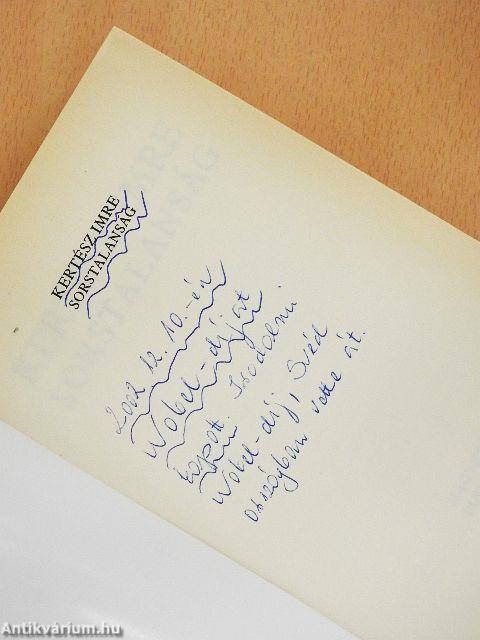 KERTÉSZ IMRE
SORSTALANSÁG
2002 12. 10.-én
Nobel-díjat
kapott. Irodalmi
Nobel-díj, Svéd
Országban vette át.
Antikvárium.hu